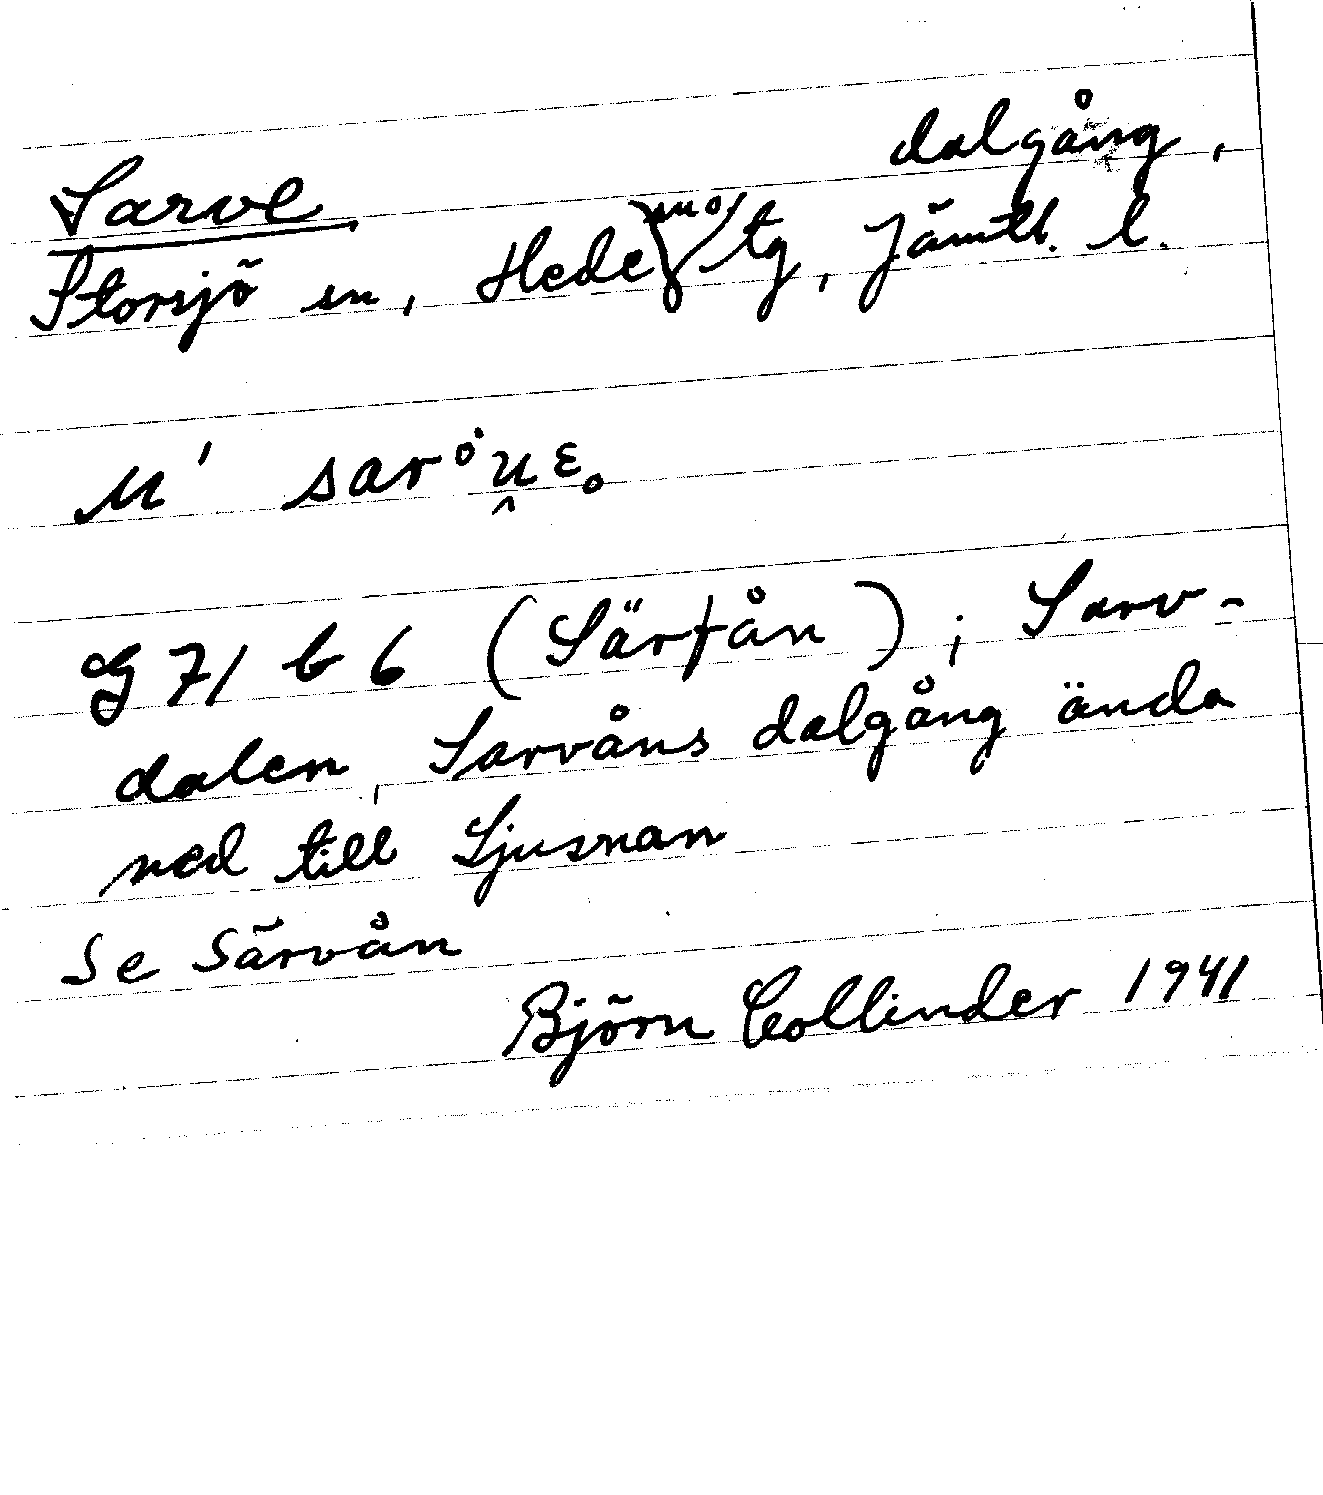 Sarve dalgång,
Storsjö sn, Hede tg, Jämtl. l.
M' sar
G 71 b 6 (Särfån); Sarv-
dalen, Sarvåns dalgång ända
ned till Ljusnan
Se Särvån
Björn Collinder 1941